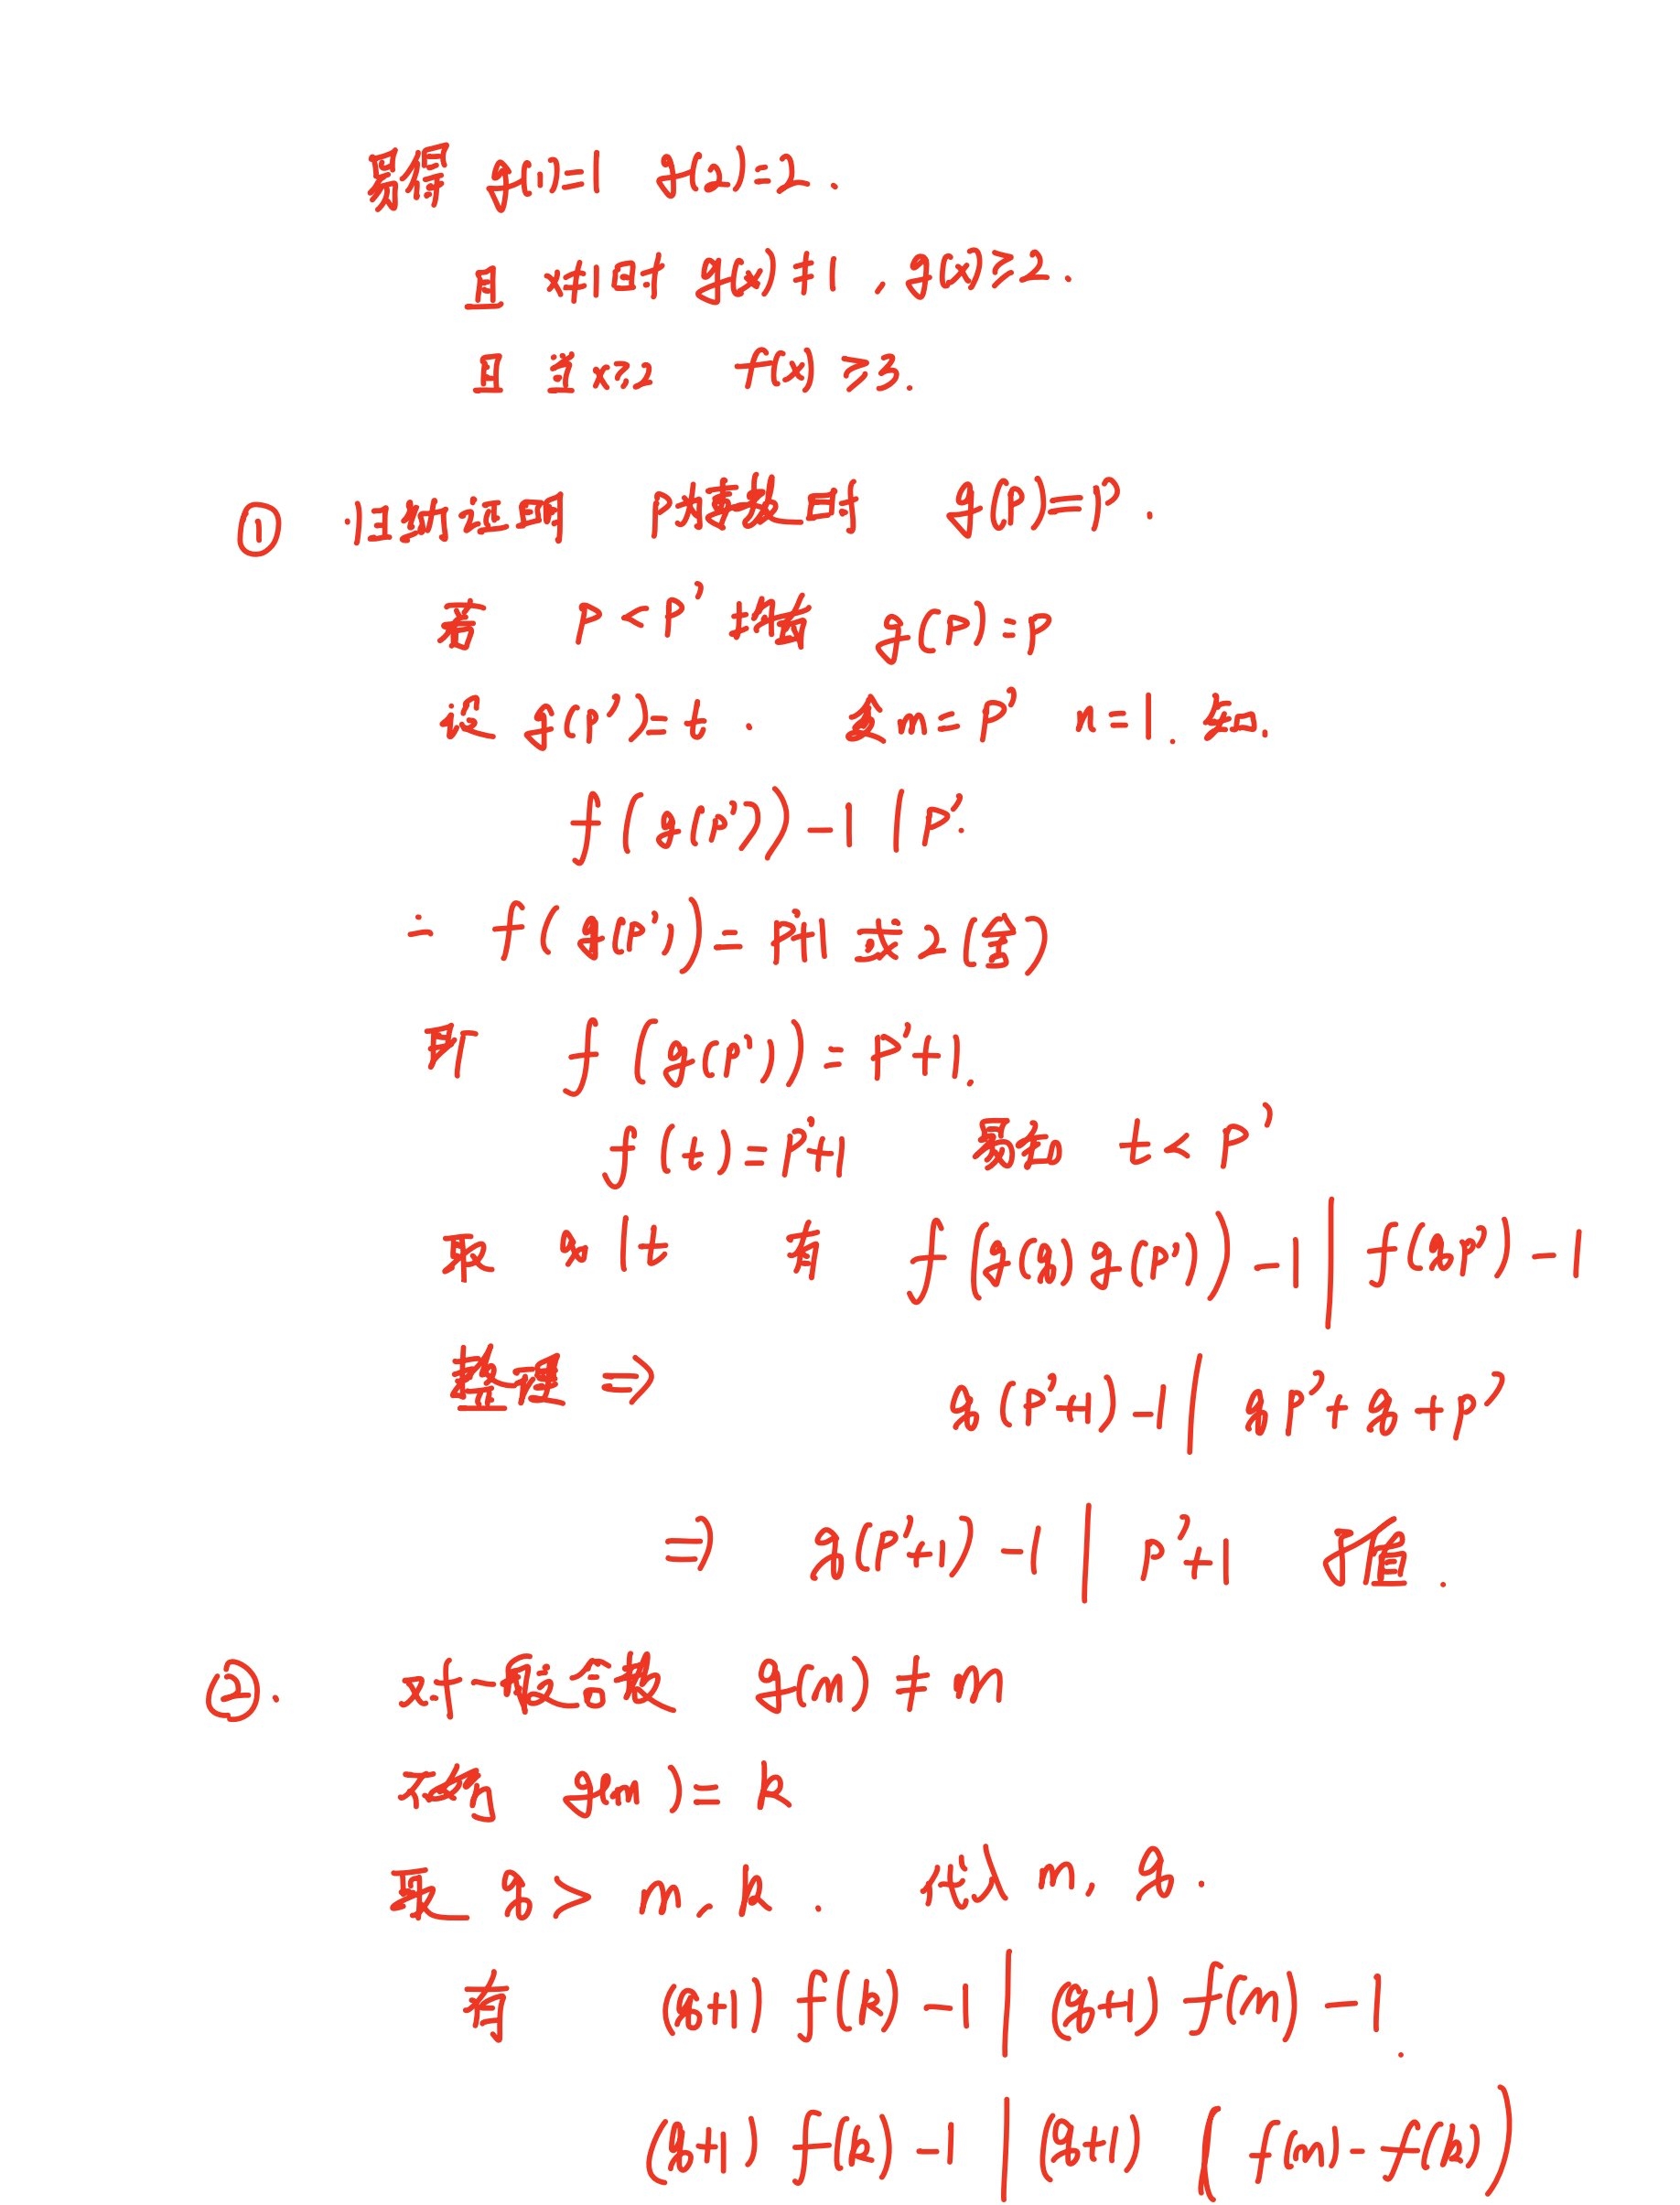 易得 g(1)=1 g(2)=2.
且 x≠1时 g(x)≠1, g(x)≥2.
且 当x≥2 f(x)≥3.
① 归纳证明 P为素数时 g(P)=P.
若 P<P' 均有 g(P)=P
设 g(P')=t. 令 m=P' n=1. 知.
f(g(P'))-1 | P'.
∴ f(g(P'))=P'+1 或 2(舍)
即 f(g(P'))=P'+1.
f(t)=P'+1 易知 t<P'
取 q|t 有 f(g(q)g(P'))-1 | f(qP')-1
整理 ⇒ q(P'+1)-1 | qP'+q+P'
⇒ q(P'+1)-1 | P'+1 矛盾.
②. 对一般合数 g(m)≠m
不妨 g(m)=k
取 q>m,k. 代入 m, q.
有 (q+1)f(k)-1 | (q+1)f(m)-1.
(q+1)f(k)-1 | (q+1)(f(m)-f(k))